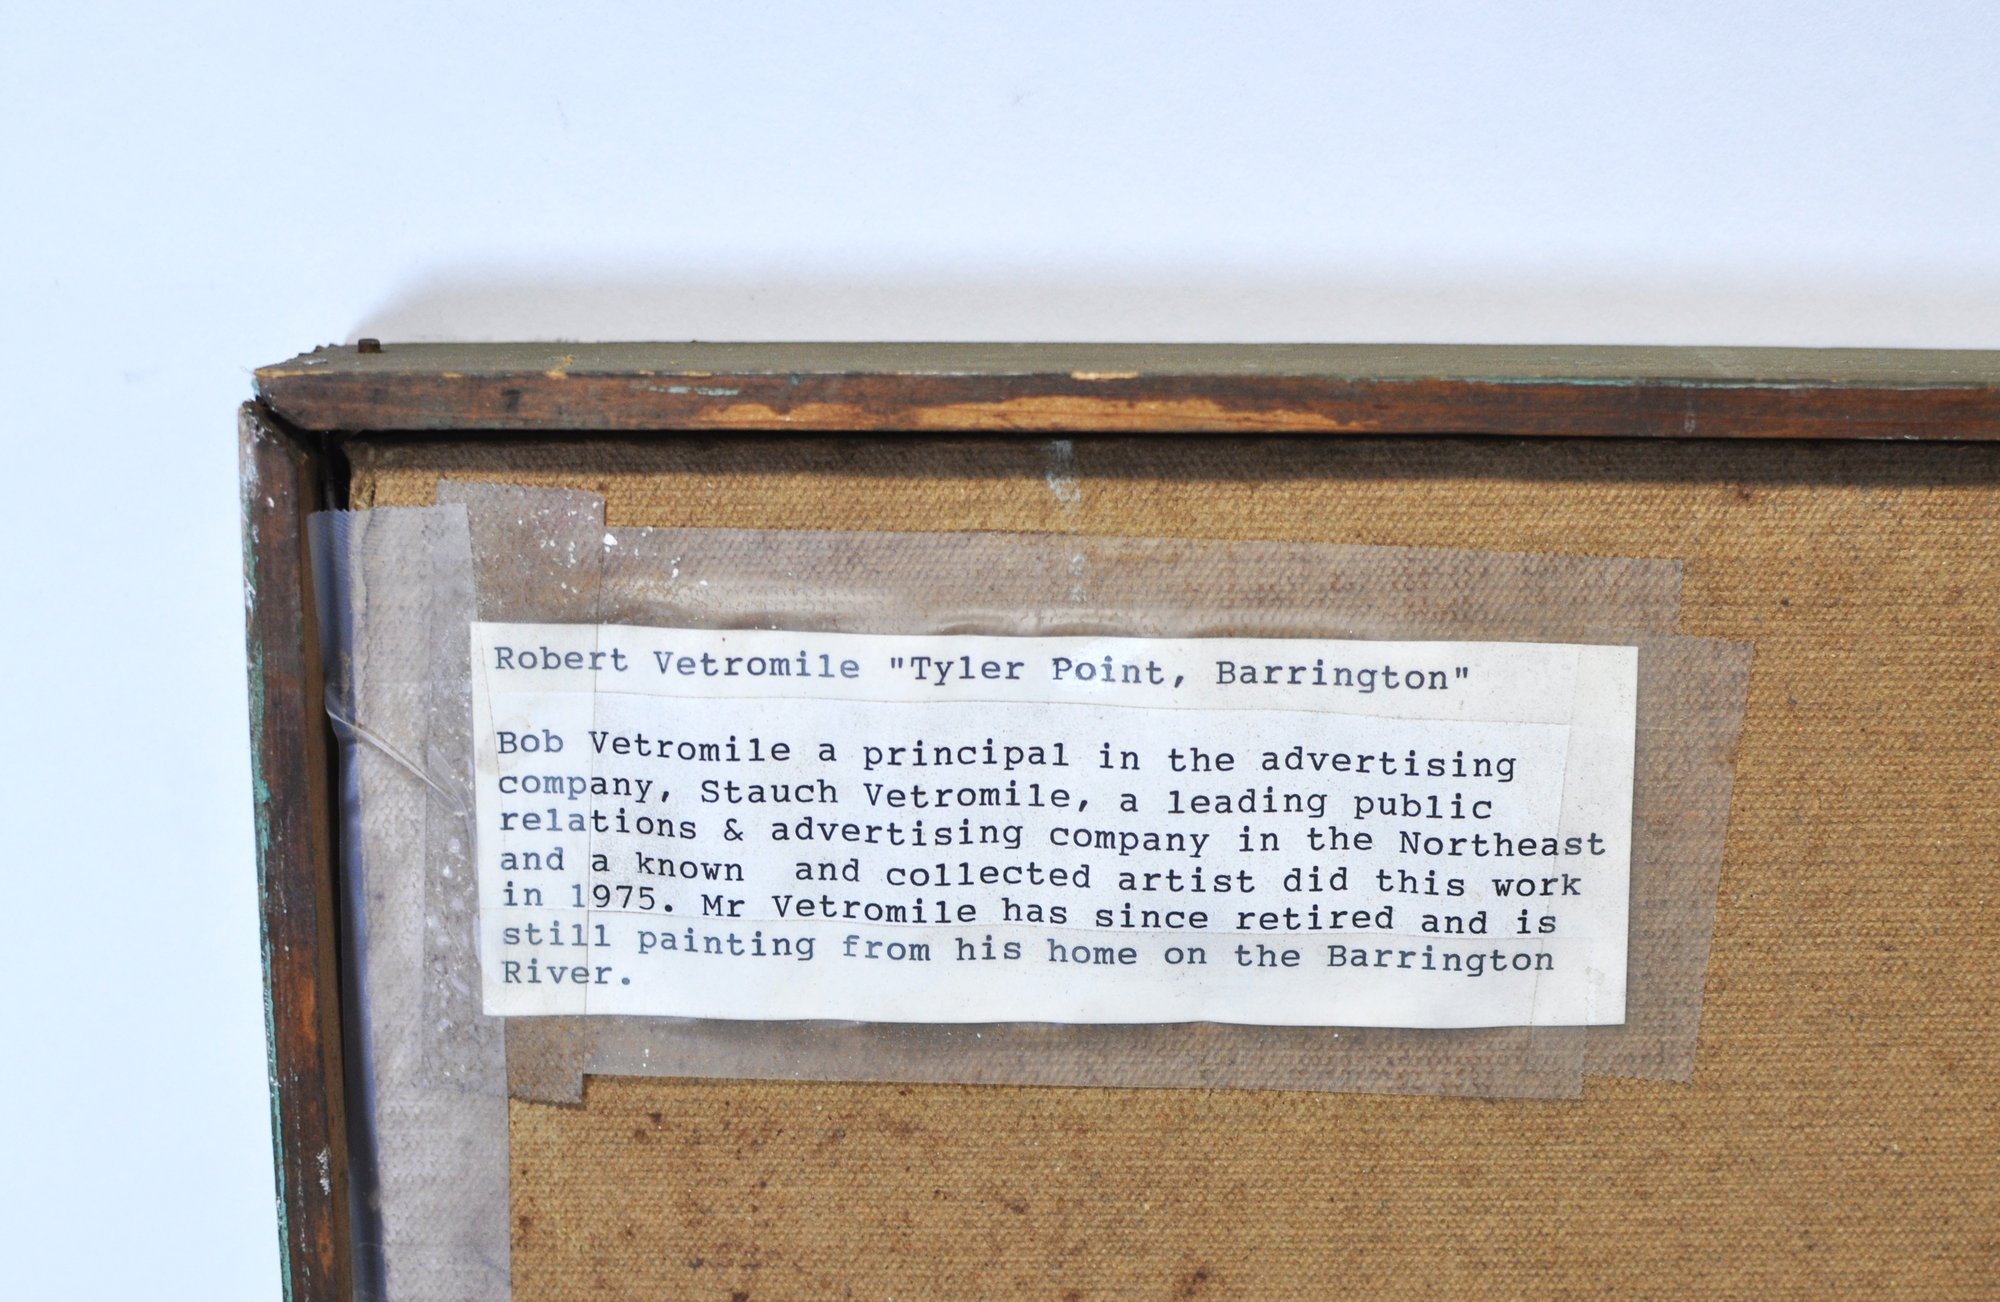 Robert Vetromile "Tyler Point, Barrington"
Bob Vetromile a principal in the advertising
company, Stauch Vetromile, a leading public
relations & advertising company in the Northeast
and a known  and collected artist did this work
in 1975. Mr Vetromile has since retired and is
still painting from his home on the Barrington
River.